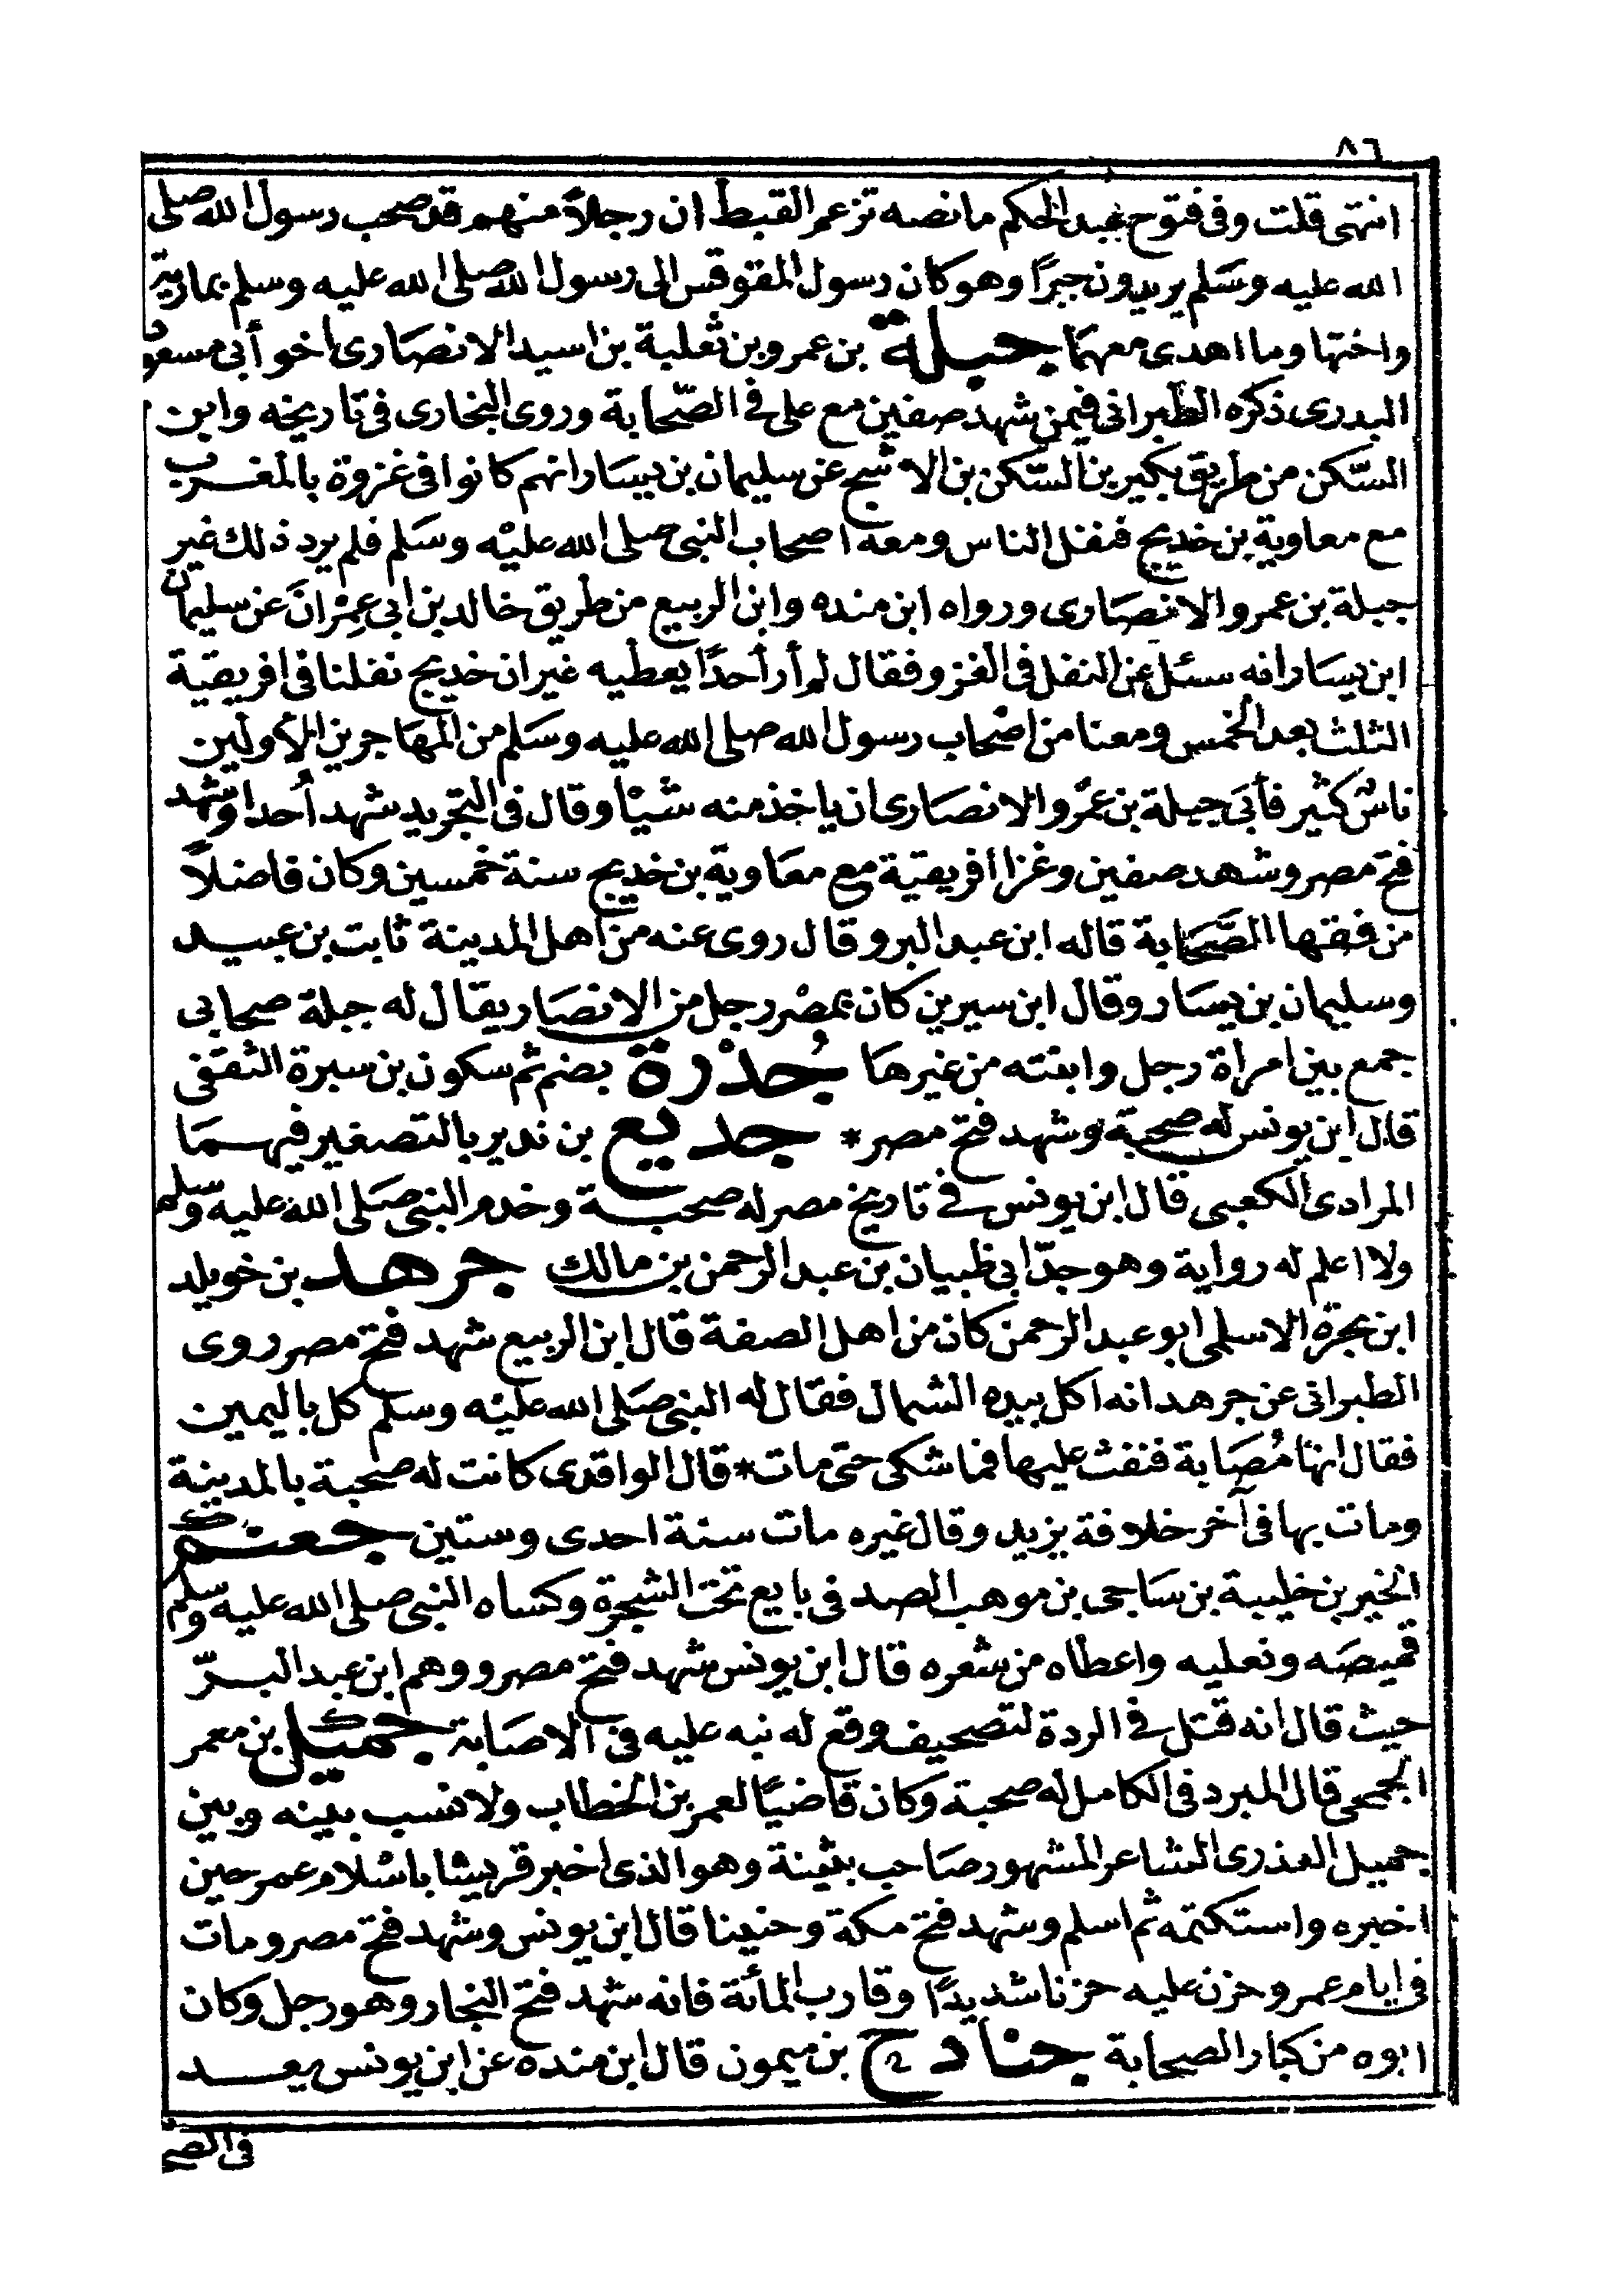 ٨٦
انتهى قلت وفى فتوح عبد الحكم مانصه تزعم القبط ان رجلاً منهم قد صحب رسول الله صلى
الله عليه وسَلم يريدون جبرًا وهو كان رسول المقوقس الى رسول الله صلى الله عليه وسلم بمارية
واختها وما اهدى معهمَا جبلة بن عمرو بن ثعلبة بن اسيد الانصَارى اخو أبى مسعود
البدرى ذكره الطبرانى فيمن شهد صفين مع على فى الصّحابة وروى البخارى فى تاريخه وابن
السّكن من طريق بكير بن السّكن بن الاشج عن سليمان بن يسَار انهم كانوا فى غزوة بالمغرب
مع معاوية بن خديج فنفل الناس ومعه اصحاب النبى صلى الله عليْه وسَلم فلم يرد ذلك غير
جبلة بن عمرو الانصَارى ورواه ابن منده وابن الربيع من طريق خالد بن ابى عِمْرانَ عن سليمان
ابن يسَار انه سئل عن النفل فى الغزو فقال لم أر أحدًا يعطيه غير ان خديج نفلنا فى افريقية
الثلث بعد الخمس ومعنا من اصْحاب رسول الله صلى الله عليه وسَلم من المهَاجرين الأولين
ناسٌ كثير فأبَى جبلة بن عمْرو الانصَارى ان ياخذ منه شيْا وقال فى التجريد شهد أُحدا وشهد
فتح مصر وشهد صفين وغزا افريقية مع معَاوية بن خديج سنة خمسين وكان فاضلاً
من فقها الصَّحَابة قاله ابن عبد البر وقال روى عنه من أهل المدينة ثابت بن عبيد
وسليمان بن يسَار وقال ابن سيرين كان بمصْر رجل من الانصَار يقال له جبلة صحابى
جمع بين امرأة رجل وابنته من غيرهَا جُدْرة بضم ثم سكون بن سبرة الثقفى
قال ابن يونس له صحبة وشهد فتح مصر * جديع بن نذير بالتصغير فيهمَا
المرادى الكعبى قال ابن يونس فى تاريخ مصر له صحبة وخدم النبى صَلى الله عليه وسلم
ولا اعلم له رواية وهو جدّ ابى ظبيان بن عبد الرحمن بن مالك جرهد بن خويلد
ابن بجرة الاسلمى ابو عبد الرحمن كان من اهل الصفة قال ابن الربيع شهد فتح مصر روى
الطبرانى عن جرهد انه اكل بيده الشمال فقال له النبى صَلى الله عليْه وسلم كل باليمين
فقال انهَا مُصَابة فنفث عليها فما شكى حتى مات * قال الواقدى كانت له صحبة بالمدينة
ومات بها فى آخر خلافة يزيد وقال غيره مات سنة احدى وستين جعثم
الخير بن خليبة بن سَاجى بن موهب الصدفى بايع تحت الشجرة وكساه النبى صلى الله عليه وسلم
قميصَه ونعليه واعطاه من شعره قال ابن يونس شهد فتح مصر ووهم ابن عبد البرّ
حيث قال انه قتل فى الردة لتصحيف وقع له نبه عليه فى الاصَابة جميل بن معمر
الجمحى قال المبرد فى الكامل له صحبة وكان قاضيًا لعمر بن الخطاب ولا نسب بينه وبين
جميل العذرى الشاعر المشهور صَاحب بثينة وهو الذى اخبر قريشا باسْلام عمر حين
اخبره واستكتمه ثم اسلم وشهد فتح مكة وحنينا قال ابن يونس وشهد فتح مصر ومات
فى ايام عمر وحزن عليه حزنا شديدًا وقارب المأئة فانه شهد فتح النجار وهو رجل وكان
ابوه من كبار الصحابة جنادح بن ميمون قال ابن منده عن ابن يونس يعد
فى الصح